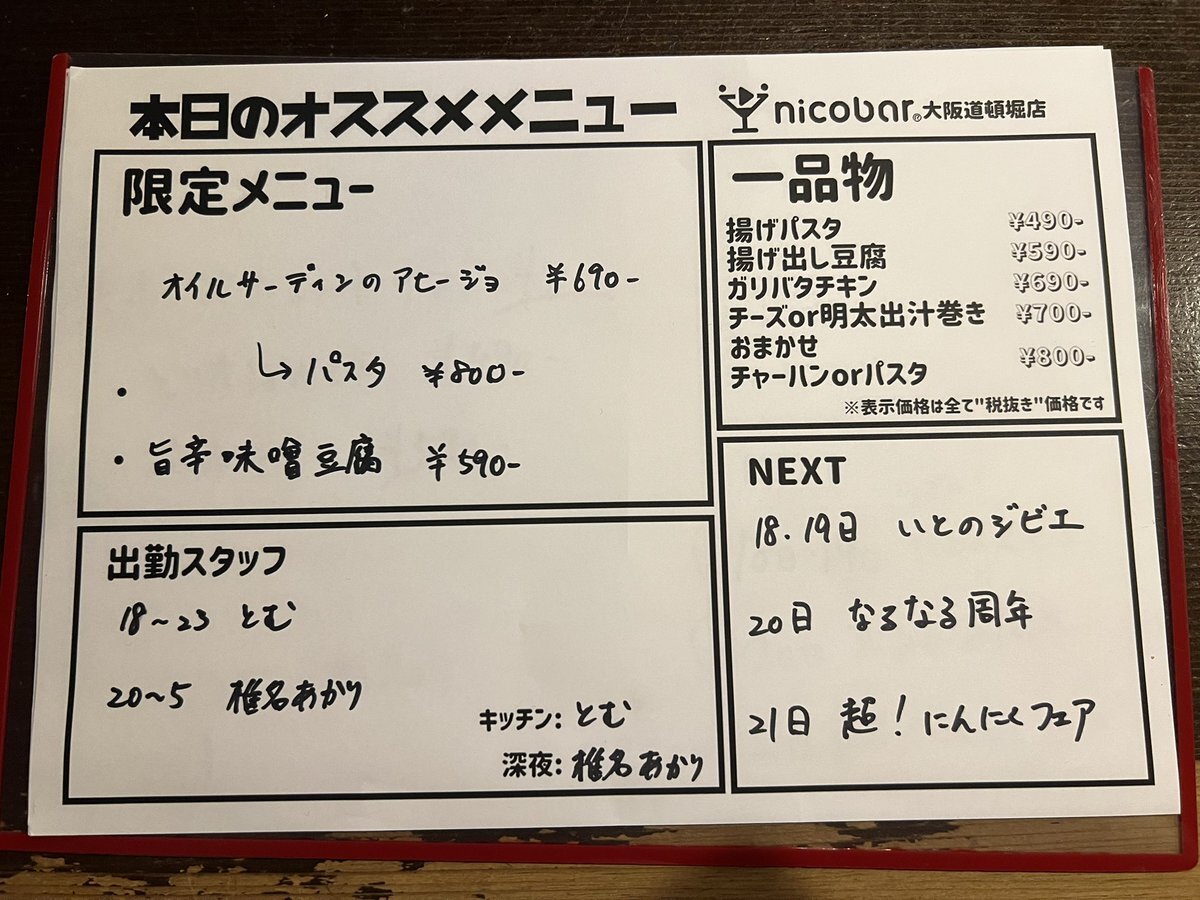 本日のオススメメニュー
nicobar®大阪道頓堀店
限定メニュー
オイルサーディンのアヒージョ ¥690-
↳パスタ ¥800-
・
・旨辛味噌豆腐 ¥590-
一品物
揚げパスタ ¥490-
揚げ出し豆腐 ¥590-
ガリバタチキン ¥690-
チーズor明太出汁巻き ¥700-
おまかせ
チャーハンorパスタ ¥800-
※表示価格は全て"税抜き"価格です
出勤スタッフ
18~23 とむ
20~5 椎名あかり
キッチン: とむ
深夜: 椎名あかり
NEXT
18.19日 いとのジビエ
20日 なるなる周年
21日 超!にんにくフェア